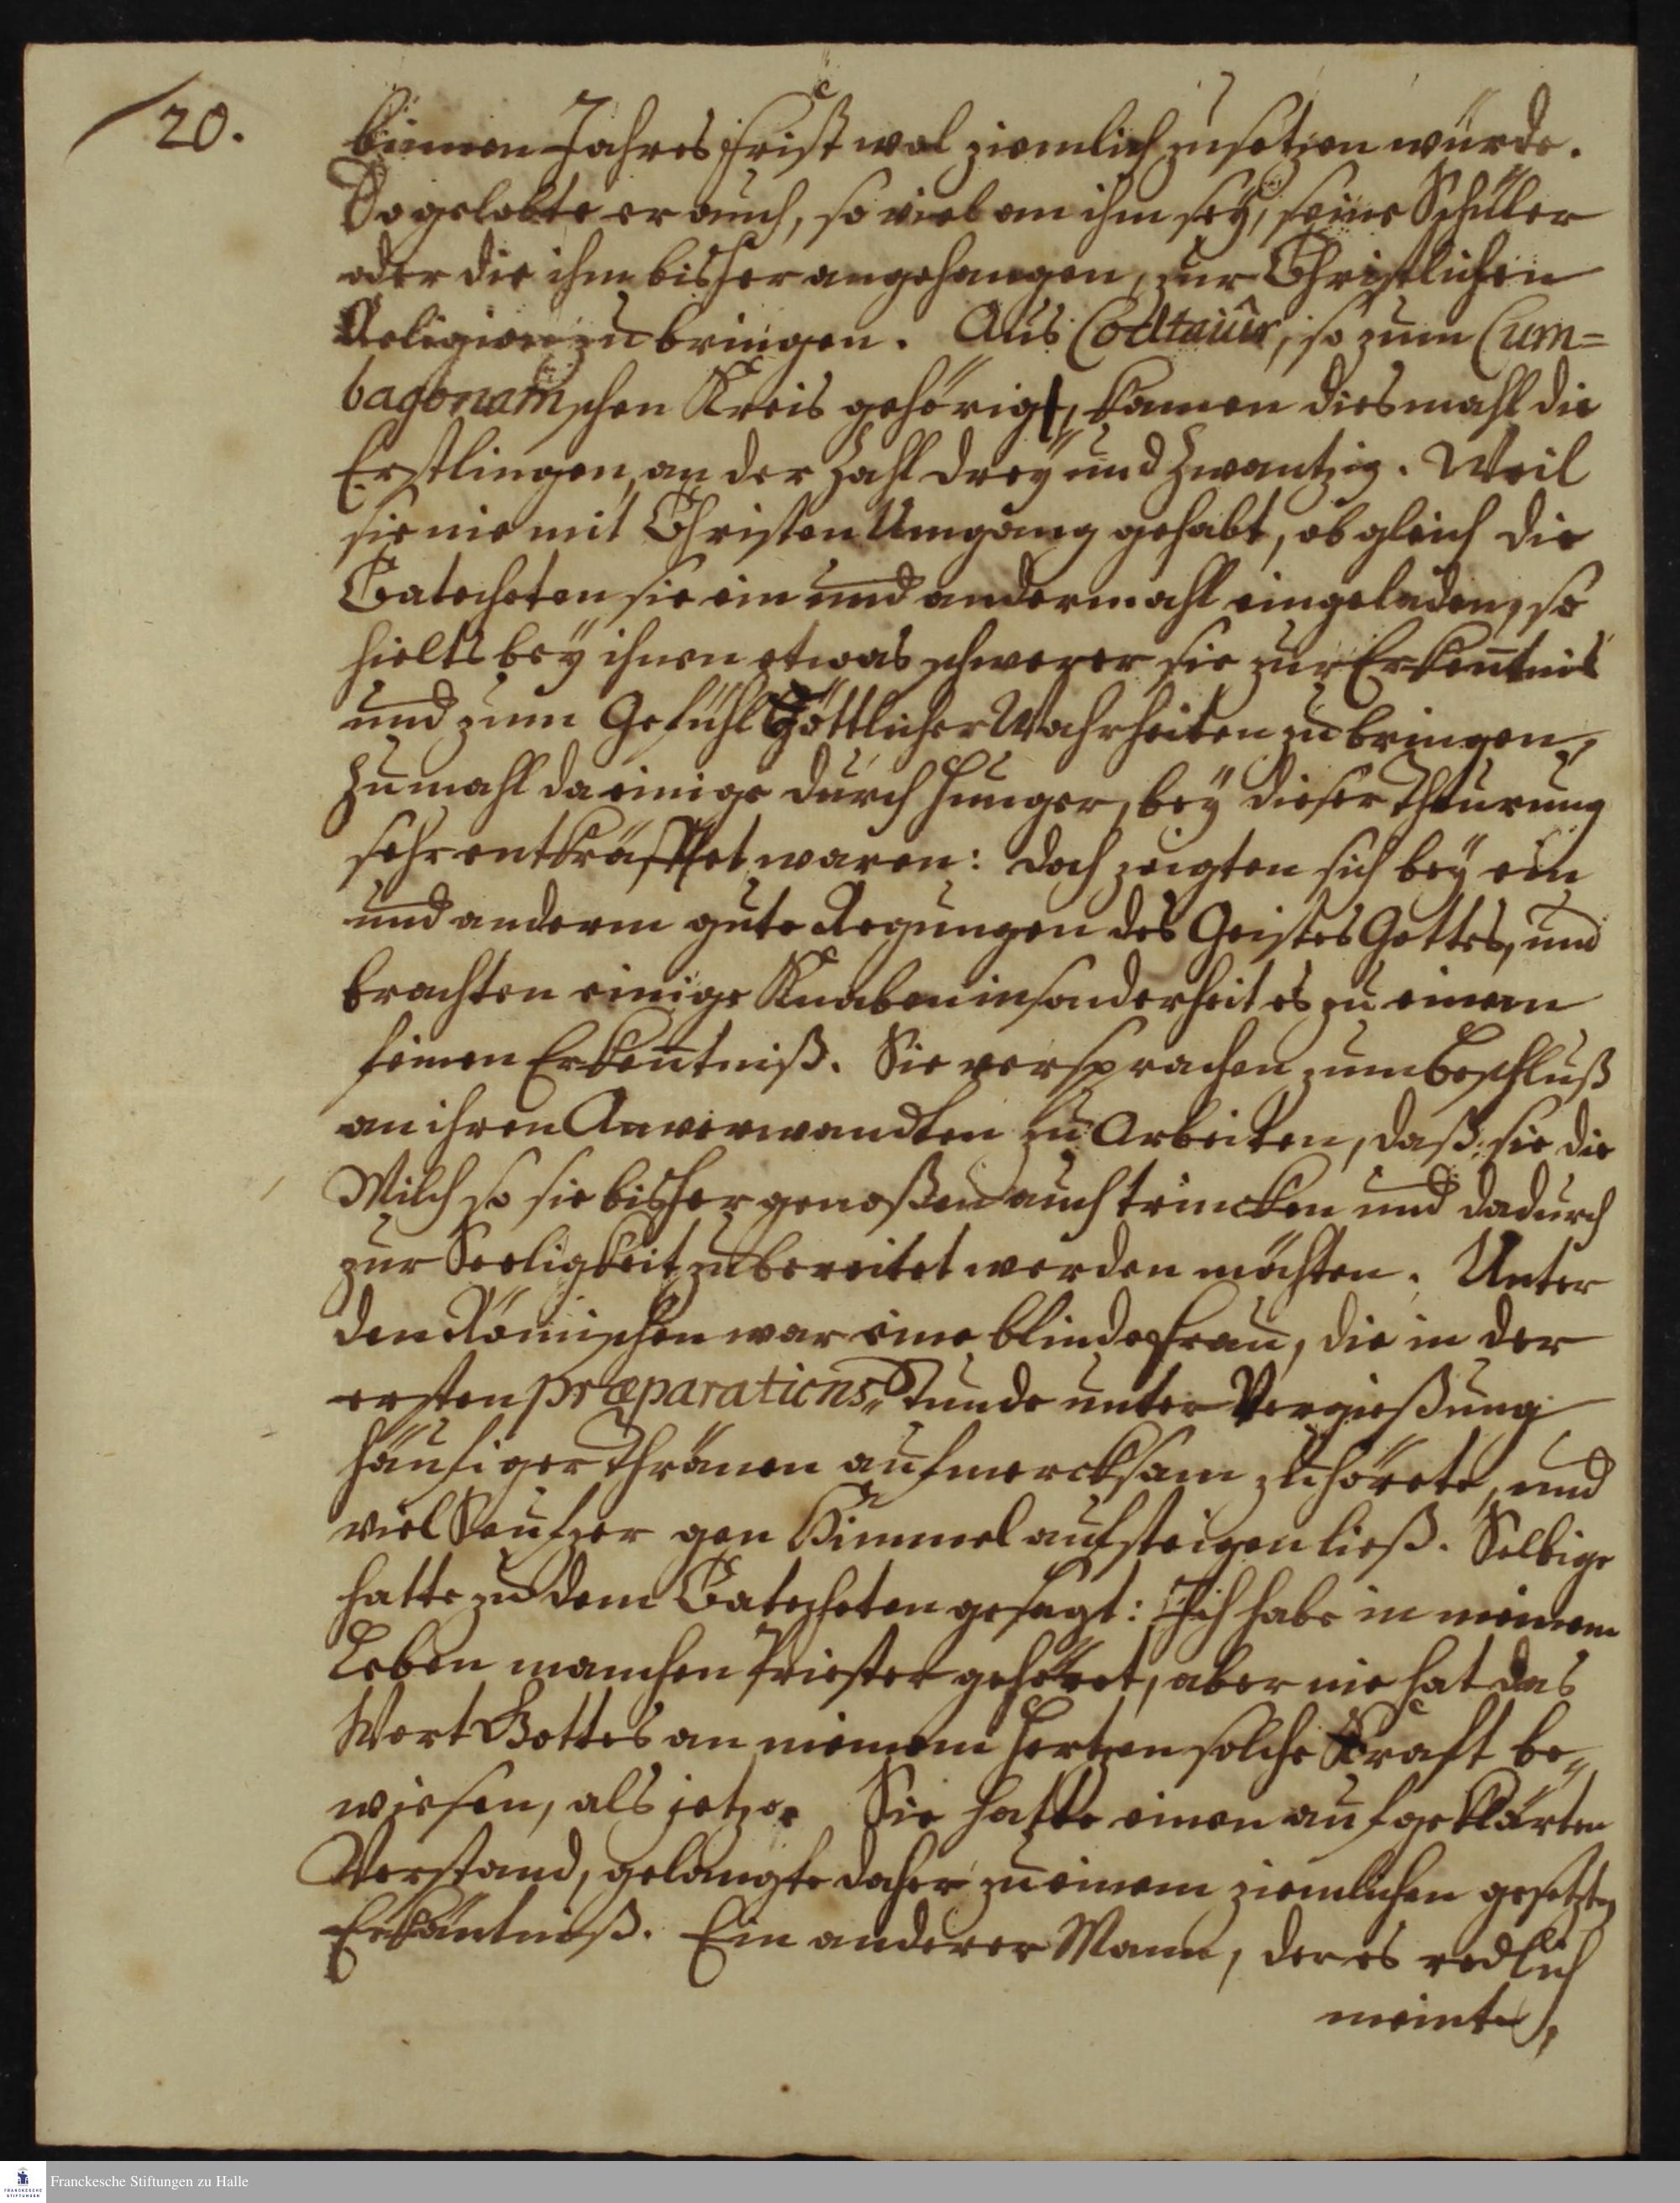 20.
binnen Jahres Frist wol ziemlich zusetzen würde.
So gelobte er auch, so viel an ihm sey, seine Schüler
oder die ihm bisher angehangen, zur Christlichen
Religion zu bringen. Aus Codtaiûr, so zum Cum=
bagonamschen Kreis gehörig, kamen diesmahl die
Erstlingen, an der Zahl drey und zwantzig. Weil
sie nie mit Christen Umgang gehabt, ob gleich die
Catecheten sie ein und andermahl eingeladen, so
hielts bey ihnen etwas schwerer sie zur Erkentnis
und zum Gefühl Göttlicher Wahrheiten zu bringen,
Zumahl da einige durch Hunger, bey dieser Theurung
sehr entkräfftet waren: doch zeigten sich bey ein
und anderm gute Regungen des Geistes Gottes, und
brachten einige Knaben insonderheit es zu einem
feinen Erkentniß. Sie versprachen zum Beschluß
an ihren Anverwandten zu Arbeiten, daß sie die
Milch so sie bisher genoßen auch trincken und dadurch
zur Seeligkeit zubereitet werden möchten. Unter
den Römischen war eine blinde Frau, die in der
ersten præparations„Stunde unter Vergießung
häufiger Thränen aufmercksam zuhörete, und
viel Seufzer gen Himmel aufsteigen ließ. Selbige
hatte zu dem Catecheten gesagt: Ich habe in meinem
Leben manchen Priester gehöret, aber nie hat das
Wort Gottes an meinem Hertzen solche Kraft be„
wiesen, als jetzo. Sie hatte einen aufgeklärten
Verstand, gelangte daher zu einem ziemlichen gesetzten
Erkäntniß. Ein anderer Mann, der es redlich
meinte,
Franckesche Stiftungen zu Halle
FRANCKESCHE STIFTUNGEN